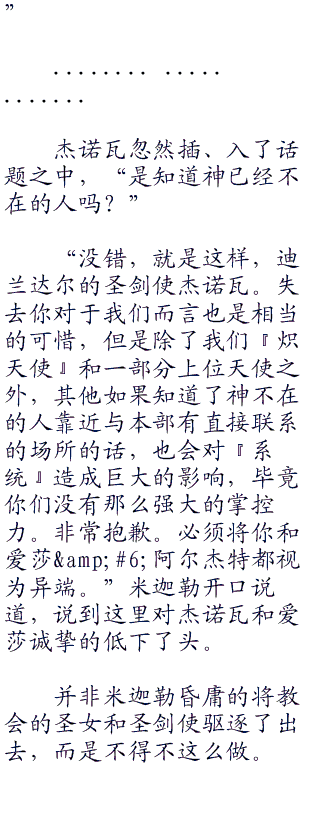 ”
........ .....
.......
杰诺瓦忽然插、入了话
题之中，“是知道神已经不
在的人吗？”
“没错，就是这样，迪
兰达尔的圣剑使杰诺瓦。失
去你对于我们而言也是相当
的可惜，但是除了我们『炽
天使』和一部分上位天使之
外，其他如果知道了神不在
的人靠近与本部有直接联系
的场所的话，也会对『系
统』造成巨大的影响，毕竟
你们没有那么强大的掌控
力。非常抱歉。必须将你和
爱莎&amp;#6;阿尔杰特都视
为异端。”米迦勒开口说
道，说到这里对杰诺瓦和爱
莎诚挚的低下了头。
并非米迦勒昏庸的将教
会的圣女和圣剑使驱逐了出
去，而是不得不这么做。